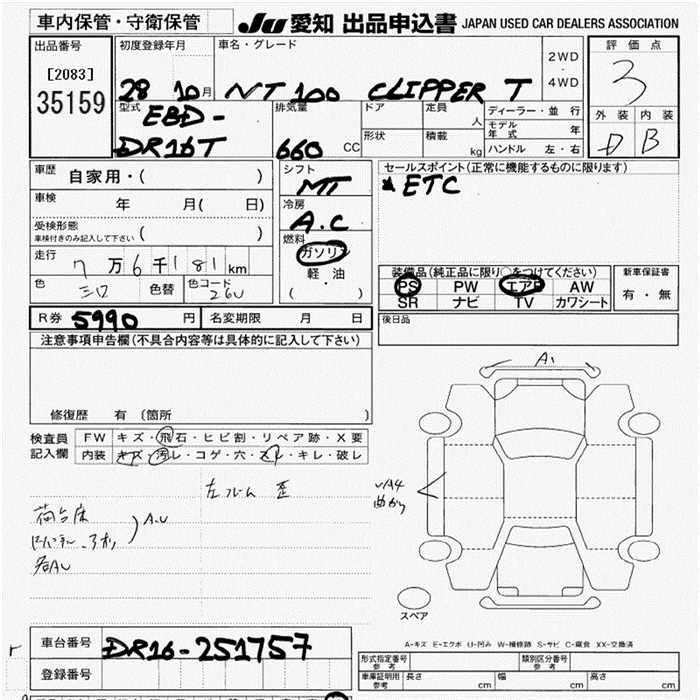 車内保管・守衛保管 JU 愛知 出品申込書 JAPAN USED CAR DEALERS ASSOCIATION
出品番号 初度登録年月 車名・グレード 2WD・4WD 評価点
[2083]
35159 28 10月 NT 100 CLIPPER T 3
型式 排気量 ドア 定員 人 ディーラー・並行 外装 内装
EBD-
DR16T 660 CC 形状 積載 kg モデル年式 年 D B
ハンドル 左・右
車歴 自家用・( ) シフト MT セールスポイント(正常に機能するものに限ります)
ETC
車検 年 月( 日) 冷房 A.C
受検形態 車検付きのみ記入して下さい ( ) 燃料 ガソリン
走行 7万6千181km 軽油
( )
色 色替 色コード 26U
装備品(純正品に限り○をつけてください) 新車保証書
PS PW エアB AW 有・無
SR ナビ TV カワシート
R券 5990 円 名変期限 月 日 後日品
注意事項申告欄(不具合内容等は具体的に記入して下さい)
修復歴 有 (箇所 )
検査員記入欄 FW キズ・飛石・ヒビ割・リペア跡・X要
内装 キズ・汚レ・コゲ・穴・スレ・キレ・破レ
A1
左フレーム 歪
荷台床 A.U
各AU
UA4
曲がり
スペア
A-キズ E-エクボ U-凹み W-補修跡 S-サビ C-腐食 XX-交換済
車台番号 DR16-251757
登録番号
形式指定番号 参考 類別区分番号 参考
車庫証明用 参考 長さ cm 幅 cm 高さ cm